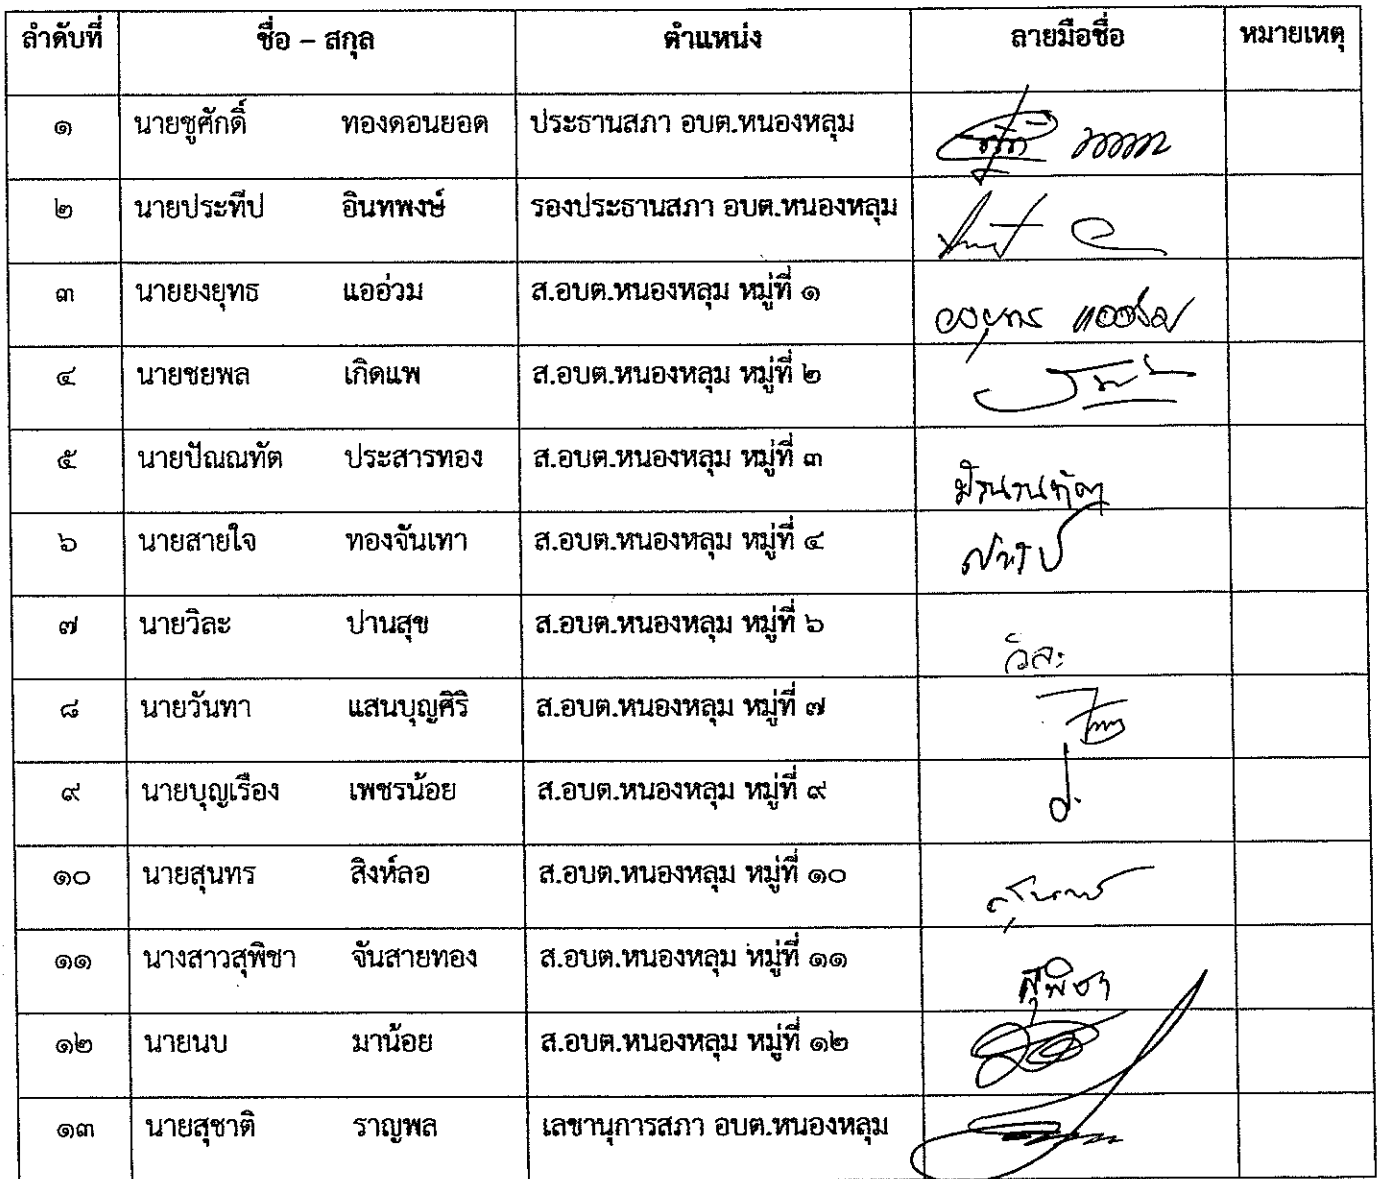 ลำดับที่ ชื่อ – สกุล ตำแหน่ง ลายมือชื่อ หมายเหตุ
๑ นายชูศักดิ์ ทองดอนยอด ประธานสภา อบต.หนองหลุม
๒ นายประทีป อินทพงษ์ รองประธานสภา อบต.หนองหลุม
๓ นายยงยุทธ แออ่วม ส.อบต.หนองหลุม หมู่ที่ ๑
๔ นายชยพล เกิดแพ ส.อบต.หนองหลุม หมู่ที่ ๒
๕ นายปัณณทัต ประสารทอง ส.อบต.หนองหลุม หมู่ที่ ๓ ปัณณทัต
๖ นายสายใจ ทองจันเทา ส.อบต.หนองหลุม หมู่ที่ ๔
๗ นายวิละ ปานสุข ส.อบต.หนองหลุม หมู่ที่ ๖ วิละ
๘ นายวันทา แสนบุญศิริ ส.อบต.หนองหลุม หมู่ที่ ๗
๙ นายบุญเรือง เพชรน้อย ส.อบต.หนองหลุม หมู่ที่ ๙
๑๐ นายสุนทร สิงห์ลอ ส.อบต.หนองหลุม หมู่ที่ ๑๐
๑๑ นางสาวสุพิชา จันสายทอง ส.อบต.หนองหลุม หมู่ที่ ๑๑ สุพิชา
๑๒ นายนบ มาน้อย ส.อบต.หนองหลุม หมู่ที่ ๑๒
๑๓ นายสุชาติ ราญพล เลขานุการสภา อบต.หนองหลุม